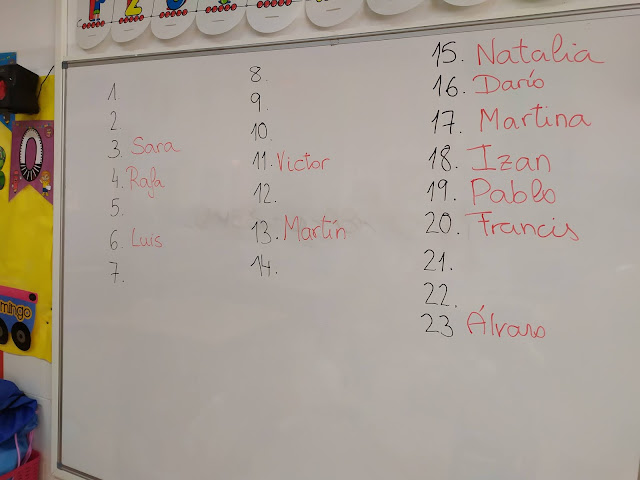 1
2.
3. Sara
4. Rafa
5.
6. Luis
7.
8.
9.
10.
11. Victor
12.
13. Martín
14.
15. Natalia
16. Darío
17. Martina
18. Izan
19. Pablo
20. Francis
21.
22.
23 Álvaro
mingo